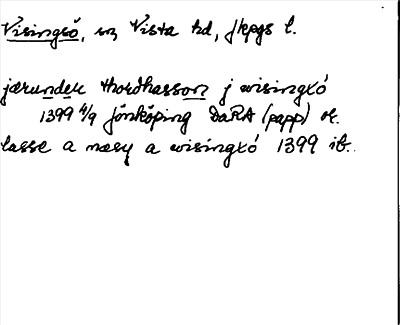 Visingsö, sn Vista hd, Jkpgs l.
jærunder thordhasson j wisingxó
1399 4/9 Jönköping DaRA (papp) or.
lasse a næsy a wisingxó 1399 ib.